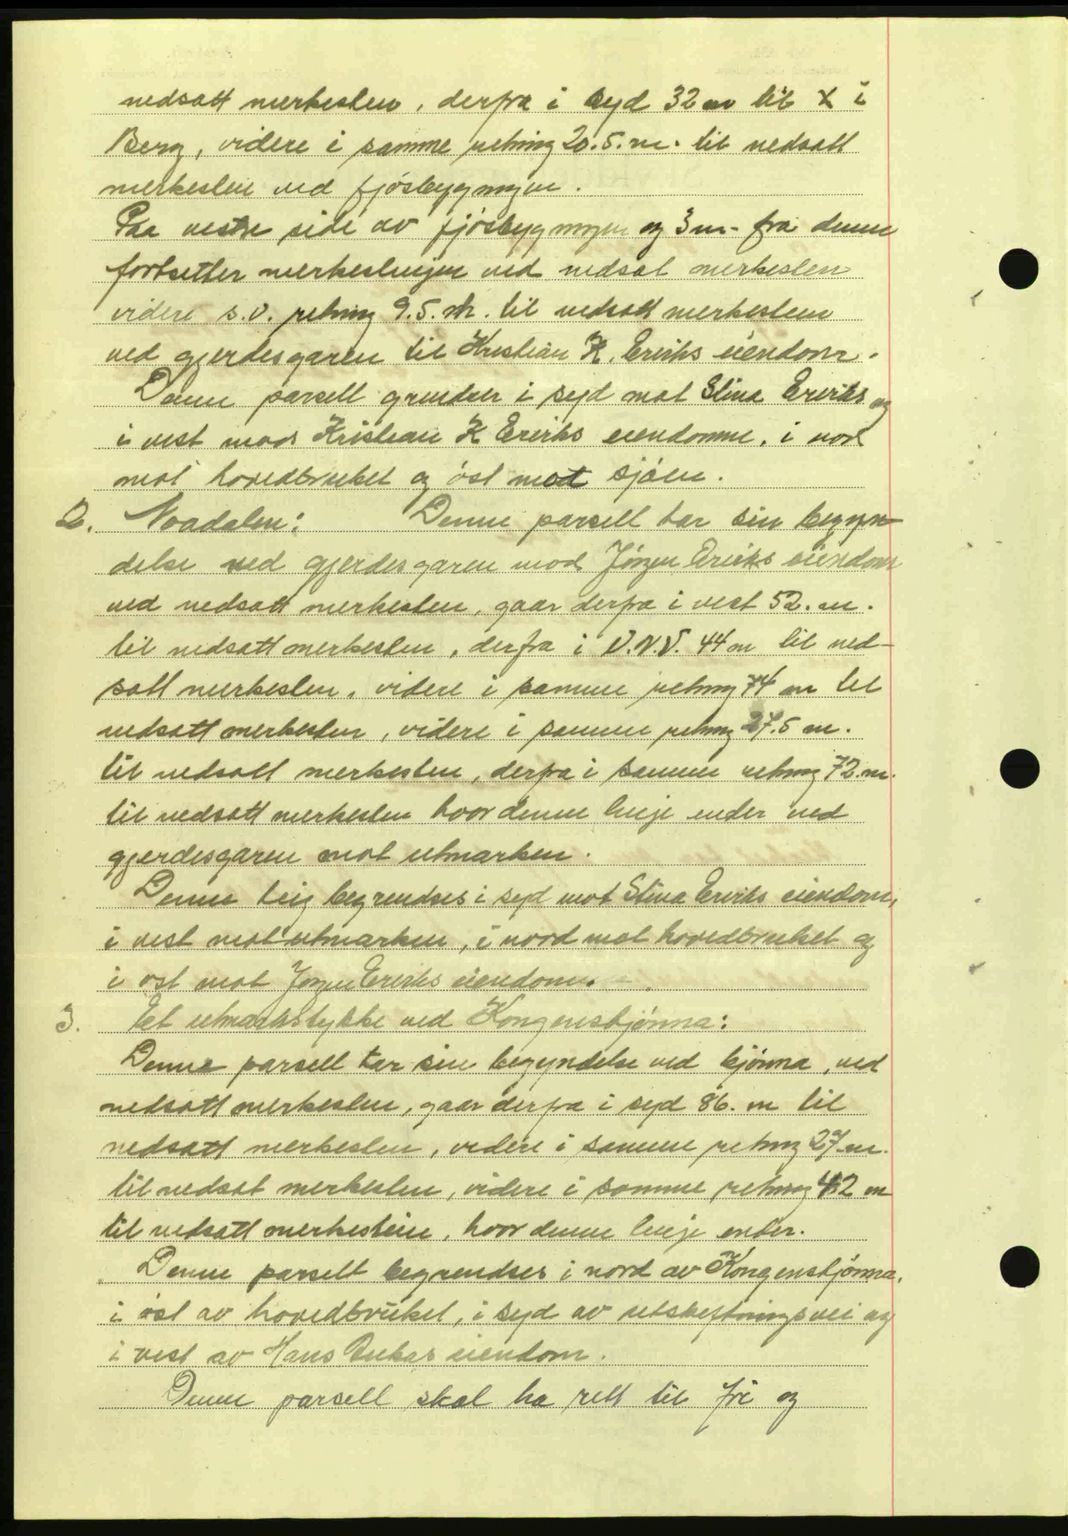 nedsatt merkesten, derfra i syd 32 m til X i
Berg, videre i samme retning 20.5. m. til nedsatt
merkesten ved fjøsbygningen.
Paa vestre side av fjøsbygningen og 3 m. fra denne
fortsetter merkeslinjen ved nedsat merkesten
videre s.v. retning 9.5. m. til nedsatt merkesten
ved gjerdesgaren til Kristian K. Eriks eiendom.
Denne parsell grendser i syd mot Stina Eriks og
i vest mods Kristian K Eriks eiendomme, i nord
mot hovedbruket og øst mot sjøen.
2. Noadalen: Denne parsell tar sin begyn-
delse ved gjerdesgaren mod Jørgen Eriks eiendom
ved nedsatt merkesten, gaar derfra i vest 52. m.
til nedsatt merkesten, derfra i V.N.V. 44 m til ned-
satt merkesten, videre i samme retning 74 m til
nedsatt merkesten, videre i samme retning 27.5 m.
til nedsatt merkesten, derfra i samme retning 72. m.
til nedsatt merkesten hvor denne linje ender ved
gjerdesgaren mot utmarken.
Denne teig begrendses i syd mot Stina Eriks eiendom,
i vest mot utmarken, i nord mot hovedbruket og
i øst mot Jørgen Eriks eiendom.
3. Et utmarkstykke ved Kongenstjønna:
Denne parsell tar sin begyndelse ved tjønna, ved
nedsatt merkesten, gaar derfra i syd 86. m til
nedsatt merkesten, videre i samme retning 27 m.
til nedsat merkesten, videre i samme retning 42 m
til nedsatt merkestein, hvor denne linje ender.
Denne parsell begrendses i nord av Kongenstjønna,
i øst av hovedbruket, i syd av utskiftningsvei og
i vest av Hans eiendom.
Denne parsell skal ha rett til fri og